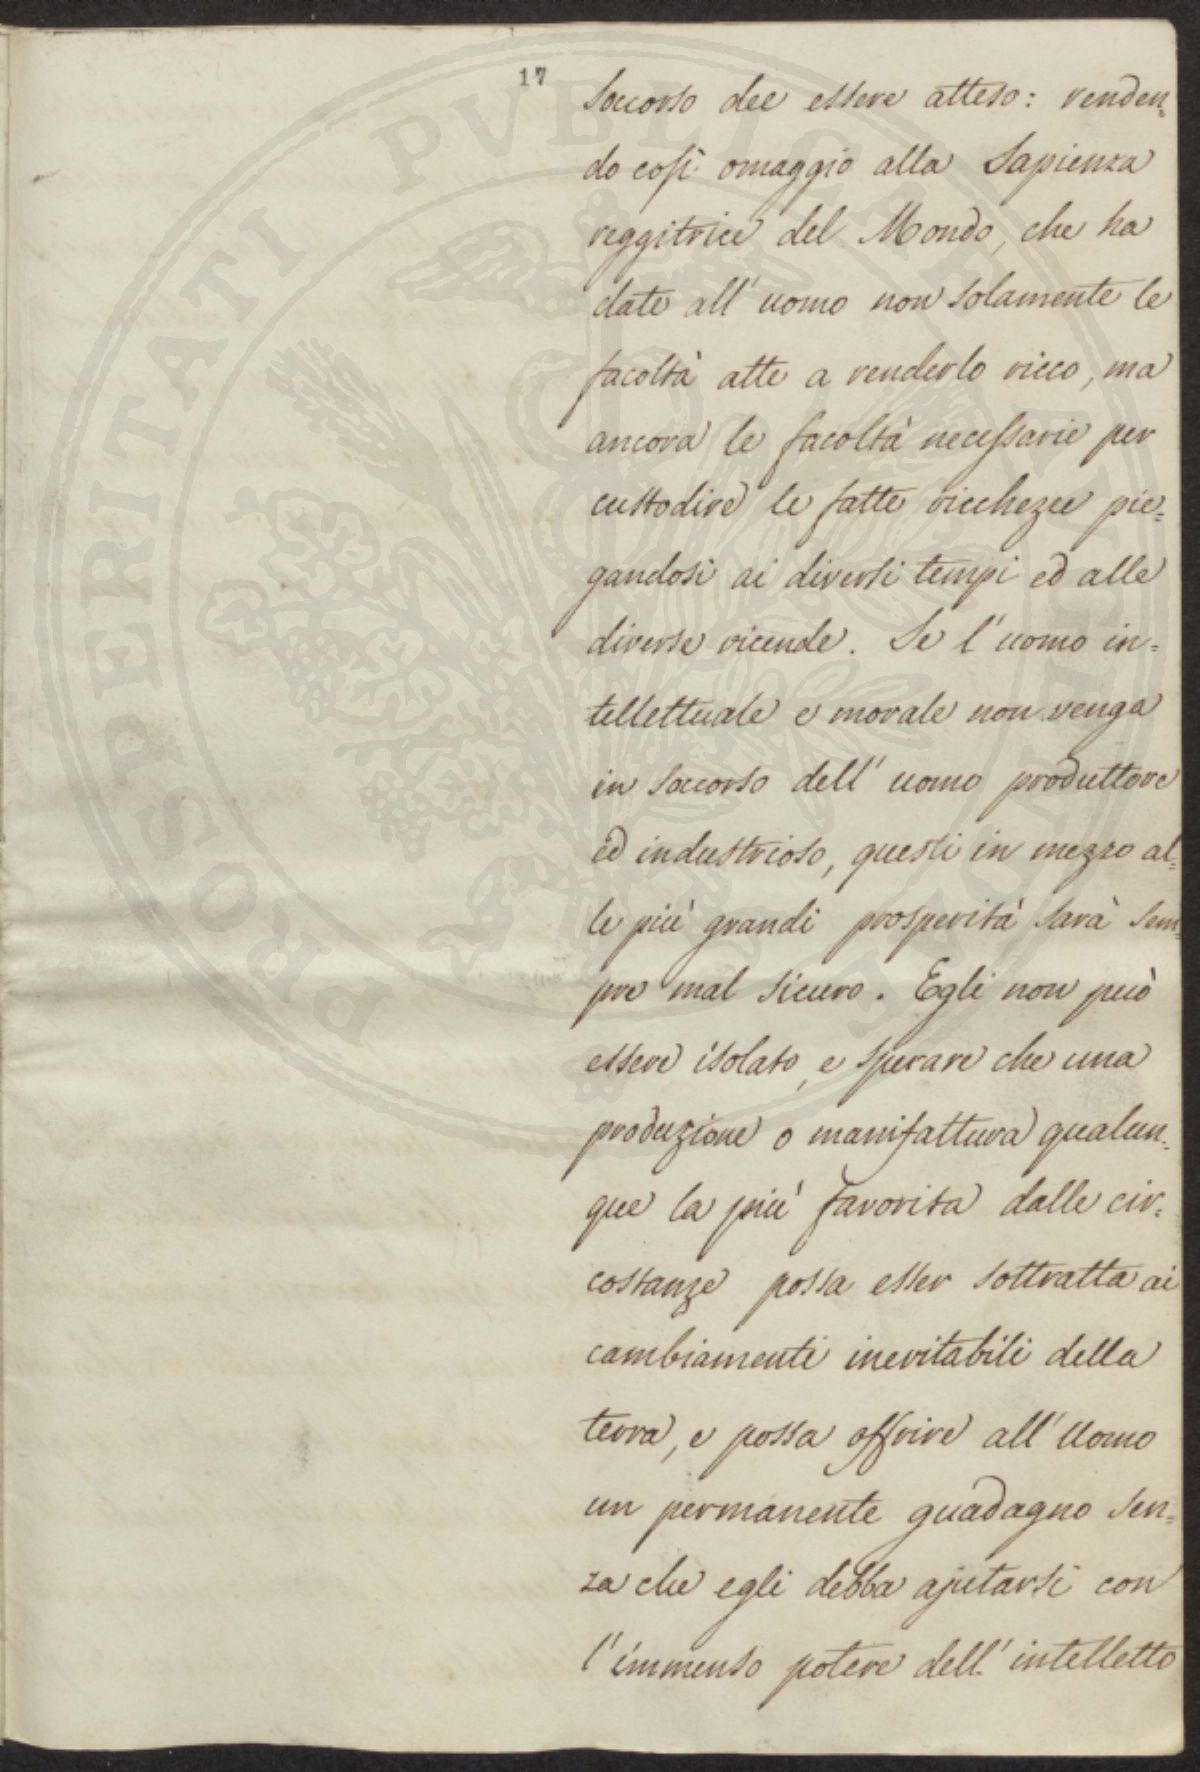 17
soccorso dee essere atteso: renden=
do così omaggio alla Sapienza
reggitrice del Mondo, che ha
date all'uomo non solamente le
facoltà atte a renderlo ricco, ma
ancora le facoltà necessarie per
custodire le fatte ricchezze pie=
gandosi ai diversi tempi ed alle
diverse vicende. Se l'uomo in=
tellettuale e morale non venga
in soccorso dell'uomo produttore
ed industrioso, questi in mezzo al=
le più grandi prosperità sarà sem=
pre mal sicuro. Egli non può
essere isolato, e sperare che una
produzione o manifattura qualun=
que la più favorita dalle cir=
costanze possa esser sottratta ai
cambiamenti inevitabili della
terra, e possa offrire all'Uomo
un permanente guadagno sen=
za che egli debba ajutarsi con
l'immenso potere dell'intelletto
PROSPERITATI PVBLICAE